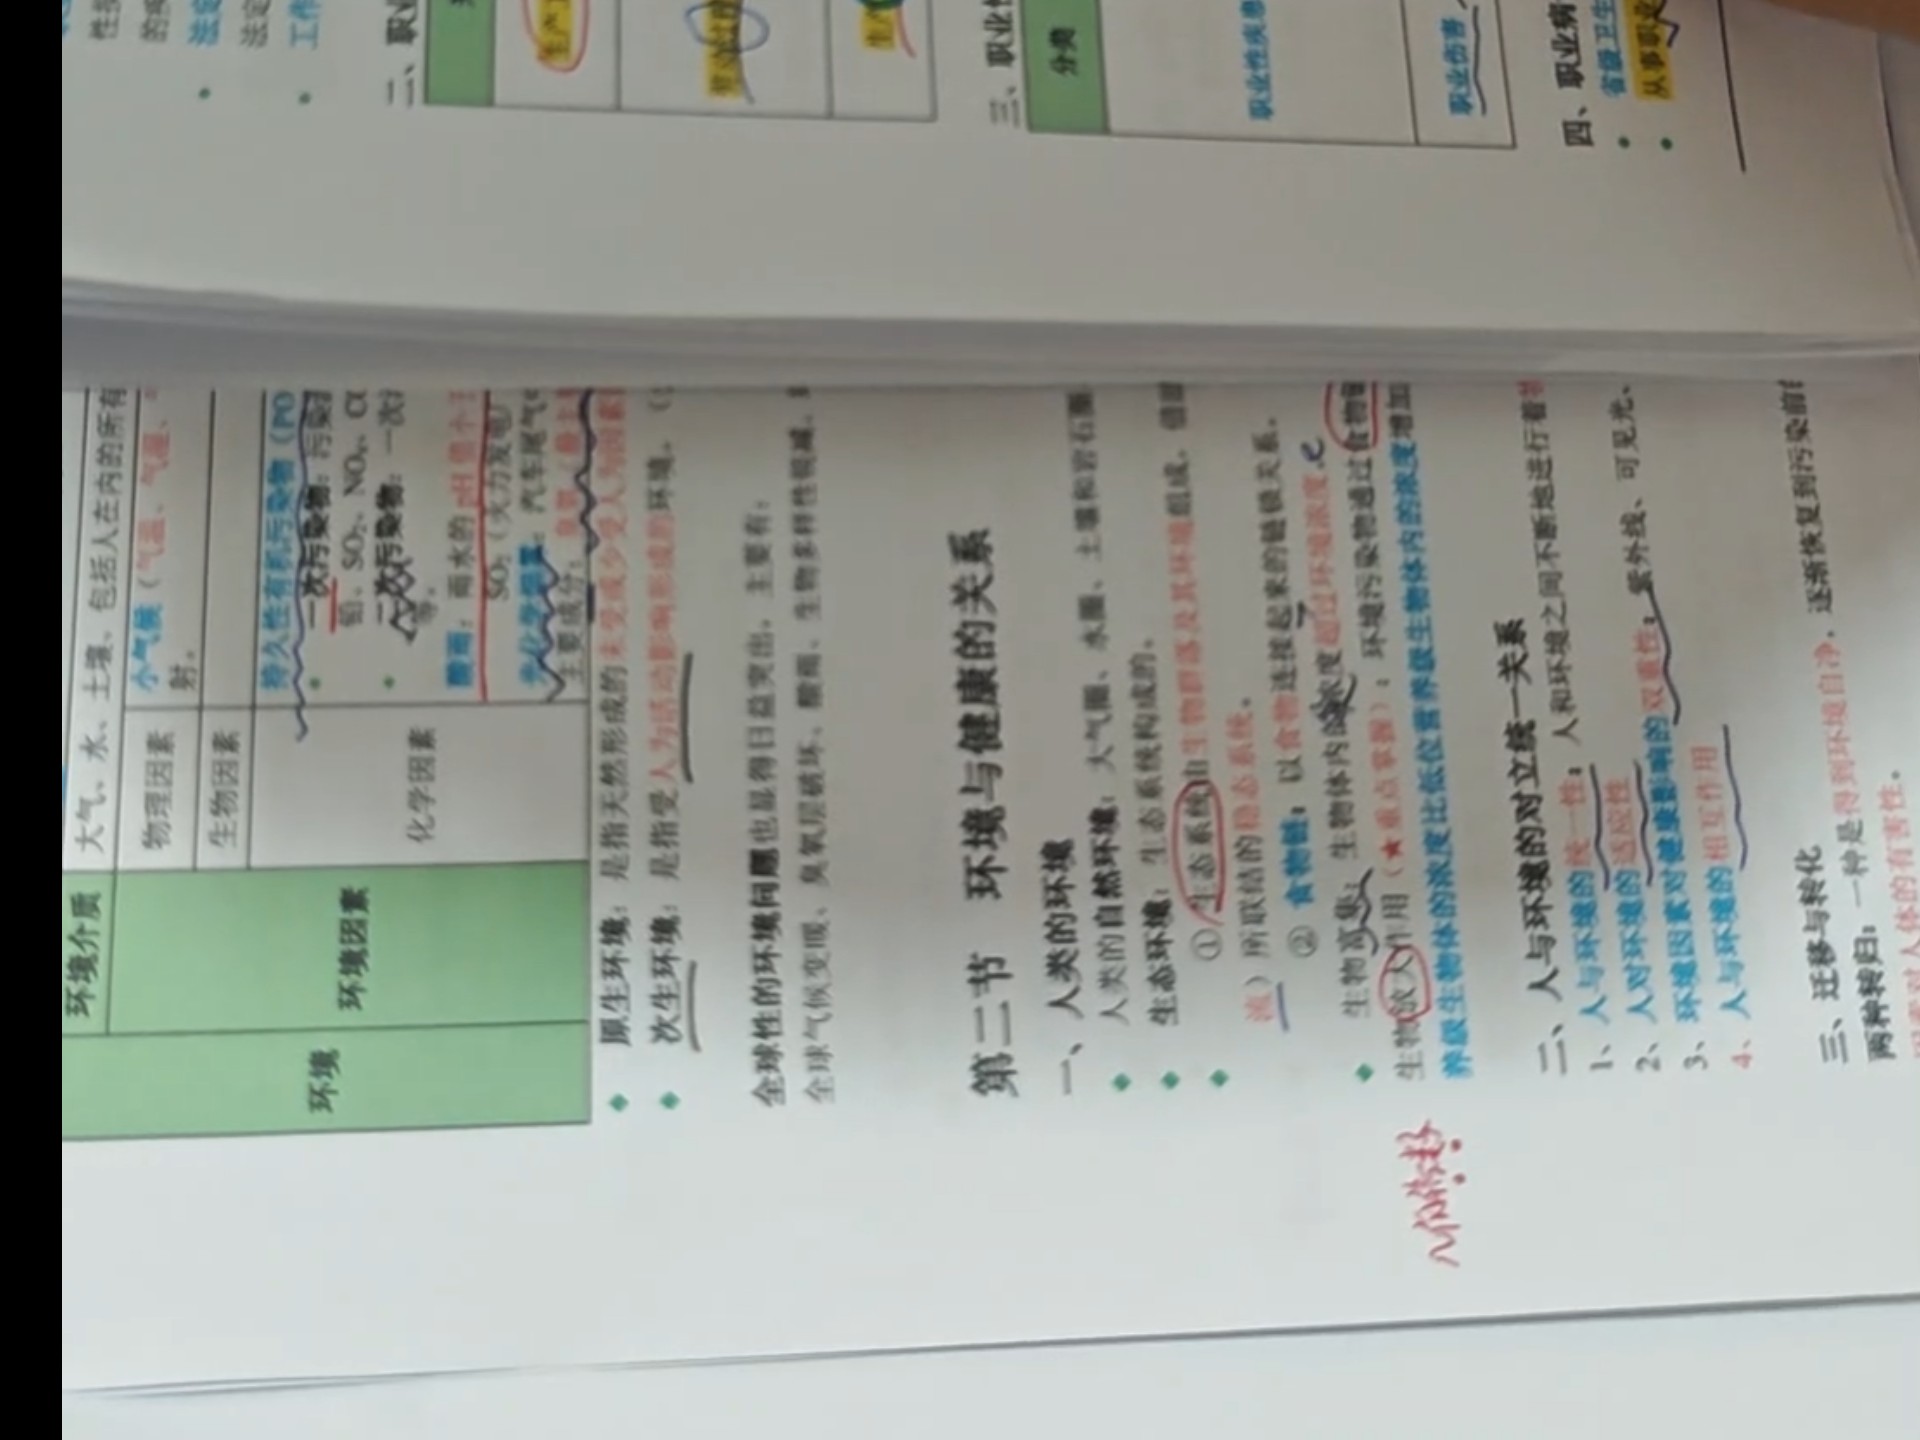 环境介质
大气、水、土壤、包括人在内的所有
环境
环境因素
物理因素
小气候（气温、气湿、
射。
生物因素
化学因素
持久性有机污染物（PO
一次污染物：污染
SO₂、NO₂、CO
二次污染物：一次
等。
酸雨：雨水的pH值小于
SO₂（火力发电
光化学烟雾：汽车尾气
主要成分：臭氧（最主要
原生环境：是指天然形成的未受或少受人为因素
次生环境：是指受人为活动影响形成的环境。
全球性的环境问题也显得日益突出，主要有：
全球气候变暖、臭氧层破坏、酸雨、生物多样性锐减、
第二节 环境与健康的关系
一、人类的环境
人类的自然环境：大气圈、水圈、土壤和岩石圈
生态环境：生态系统构成的。
①生态系统由生物群落及其环境组成，借
流）所联结的稳态系统。
②食物链：以食物连接起来的链锁关系。
生物富集：生物体内的浓度超过环境浓度
生物放大作用（★重点掌握）：环境污染物通过食物
养级生物体的浓度比低位营养级生物体内的浓度增加
二、人与环境的对立统一关系
1、人与环境的统一性：人和环境之间不断地进行着
2、人对环境的适应性
3、环境因素对健康影响的双重性：紫外线、可见光、
4、人与环境的相互作用
三、迁移与转化
两种转归：一种是得到环境自净，逐渐恢复到污染前
因素对人体的有害性。
性
的
法定
法定
工作
二、职业
生产工
劳动过程
生产
三、职业性
分类
职业性疾患
职业伤害
四、职业病
省级卫生
从事职业